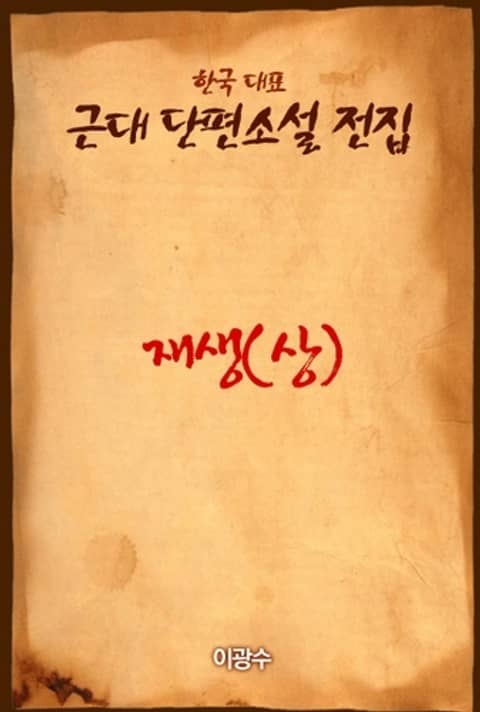 한국 대표
근대 단편소설 전집
재생(상)
이광수